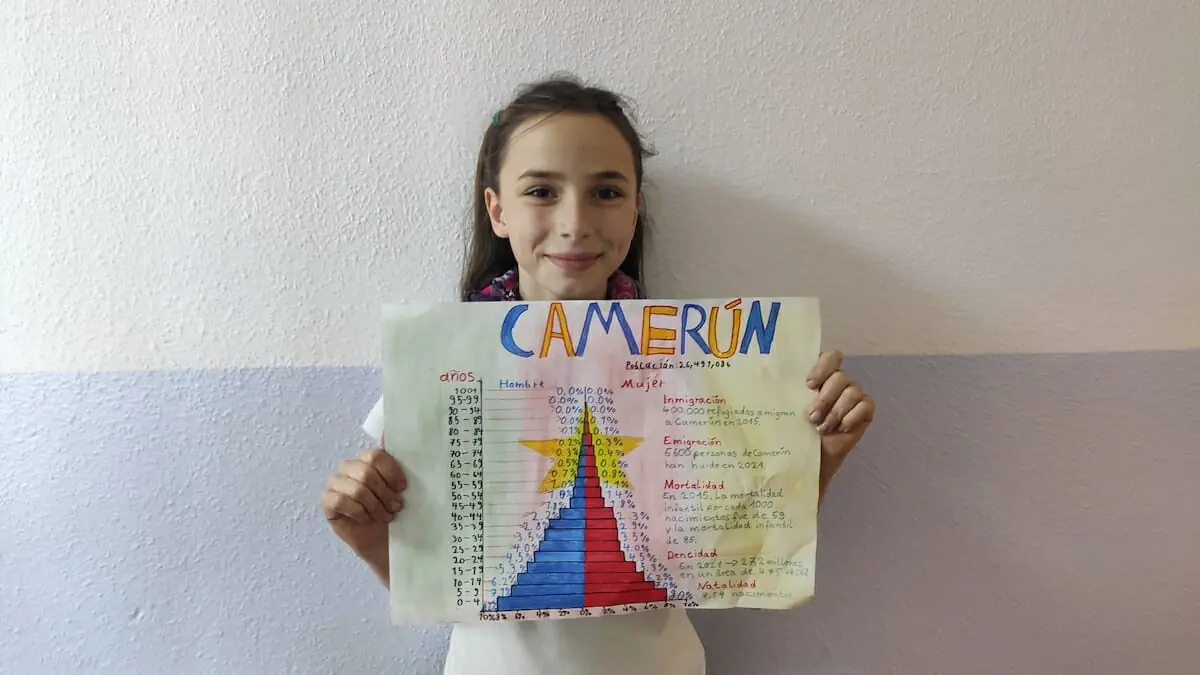 CAMERÚN
Población: 26,491,086
años
Hombre
Mujer
100+ 0.0% 0.0%
95-99 0.0% 0.0%
90-94 0.0% 0.0%
85-89 0.0% 0.1%
80-84 0.1% 0.1%
75-79 0.2% 0.3%
70-74 0.3% 0.4%
65-69 0.5% 0.6%
60-64 0.7% 0.8%
55-59 1.0% 1.1%
50-54 1.4%
45-49 1.8% 1.8%
40-44 2.2% 2.3%
35-39 2.8% 2.9%
30-34 3.5% 3.5%
25-29 4.0% 4.0%
20-24 4.5% 4.5%
15-19 5.3% 5.3%
10-14 6.2% 6.2%
5-9 7.1% 7.0%
0-4 8.0%
10% 8% 6% 4% 2% 0% 2% 4% 6% 8% 10%
Inmigración
400.000 refugiados emigran
a Camerún en 2015.
Emigración
5600 personas de Camerún
han huido en 2021.
Mortalidad
En 2015, La mortalidad
infantil por cada 1000
nacimientos fue de 59
y la mortalidad infantil
de 85.
Dencidad
En 2021 → 27,2 millones
en un área de
Natalidad
4,54 nacimientos